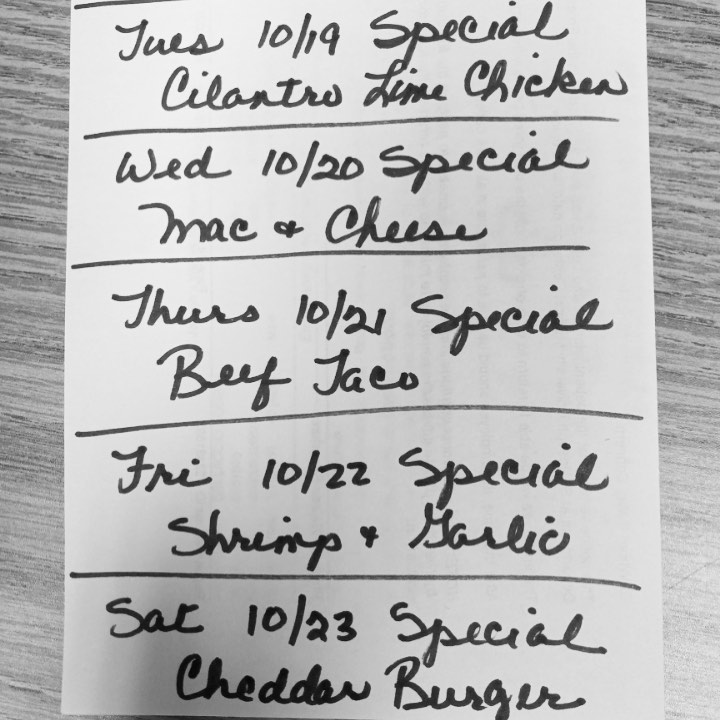 Tues 10/19 Special
Cilantro Lime Chicken
Wed 10/20 Special
Mac & Cheese
Thurs 10/21 Special
Beef Taco
Fri 10/22 Special
Shrimp & Garlic
Sat 10/23 Special
Cheddar Burger